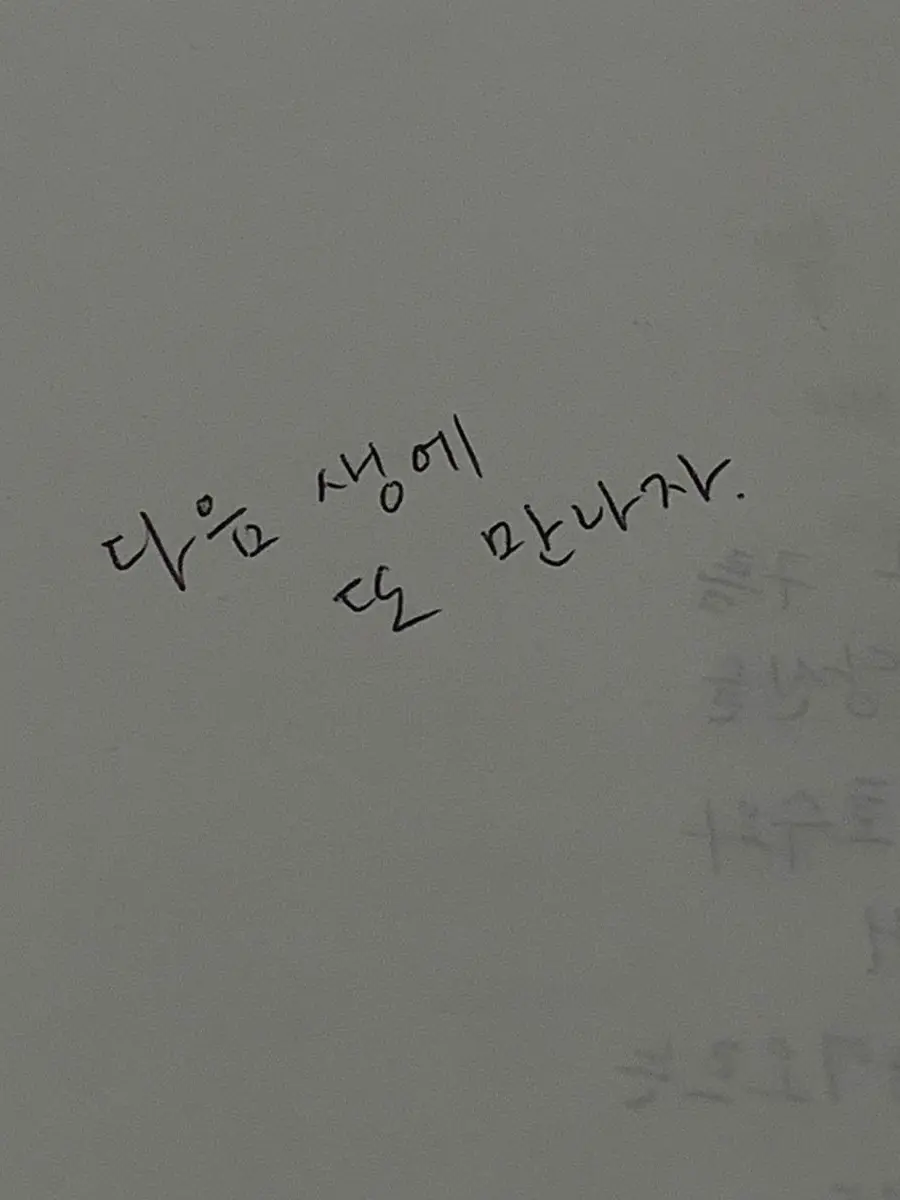 다음 생에
또 만나자.